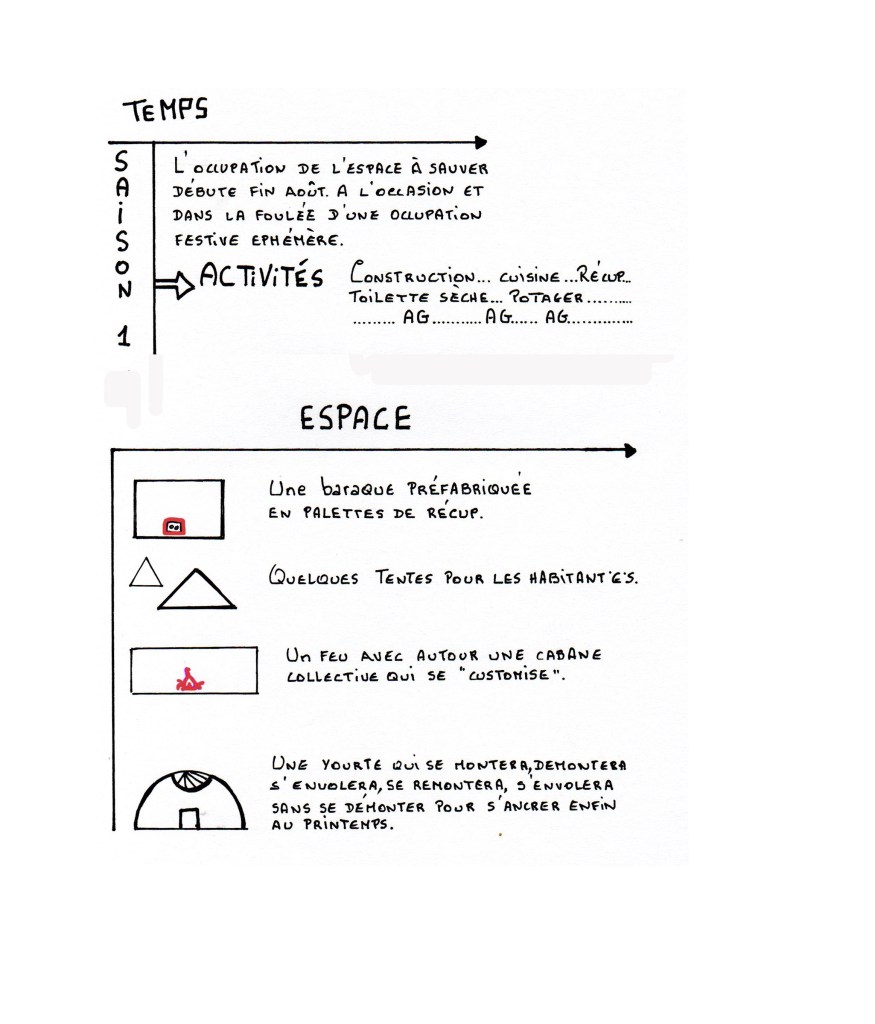 TEMPS
SAISON 1
L'OCCUPATION DE L'ESPACE À SAUVER
DÉBUTE FIN AOÛT. A L'OCCASION ET
DANS LA FOULÉE D'UNE OCCUPATION
FESTIVE EPHÉMÈRE.
ACTIVITÉS
CONSTRUCTION... CUISINE...RÉCUP...
TOILETTE SÈCHE... POTAGER..........
......... AG........... AG...... AG..............
ESPACE
Une baraque PRÉFABRIQUÉE
EN PALETTES DE RÉCUP.
QUELQUES TENTES POUR LES HABITANT'E'S.
Un FEU AVEC AUTOUR UNE CABANE
COLLECTIVE QUI SE "CUSTOMISE".
UNE YOURTE QUI SE MONTERA, DEMONTERA
S'ENVOLERA, SE REMONTERA, S'ENVOLERA
SANS SE DÉMONTER POUR S'ANCRER ENFIN
AU PRINTEMPS.